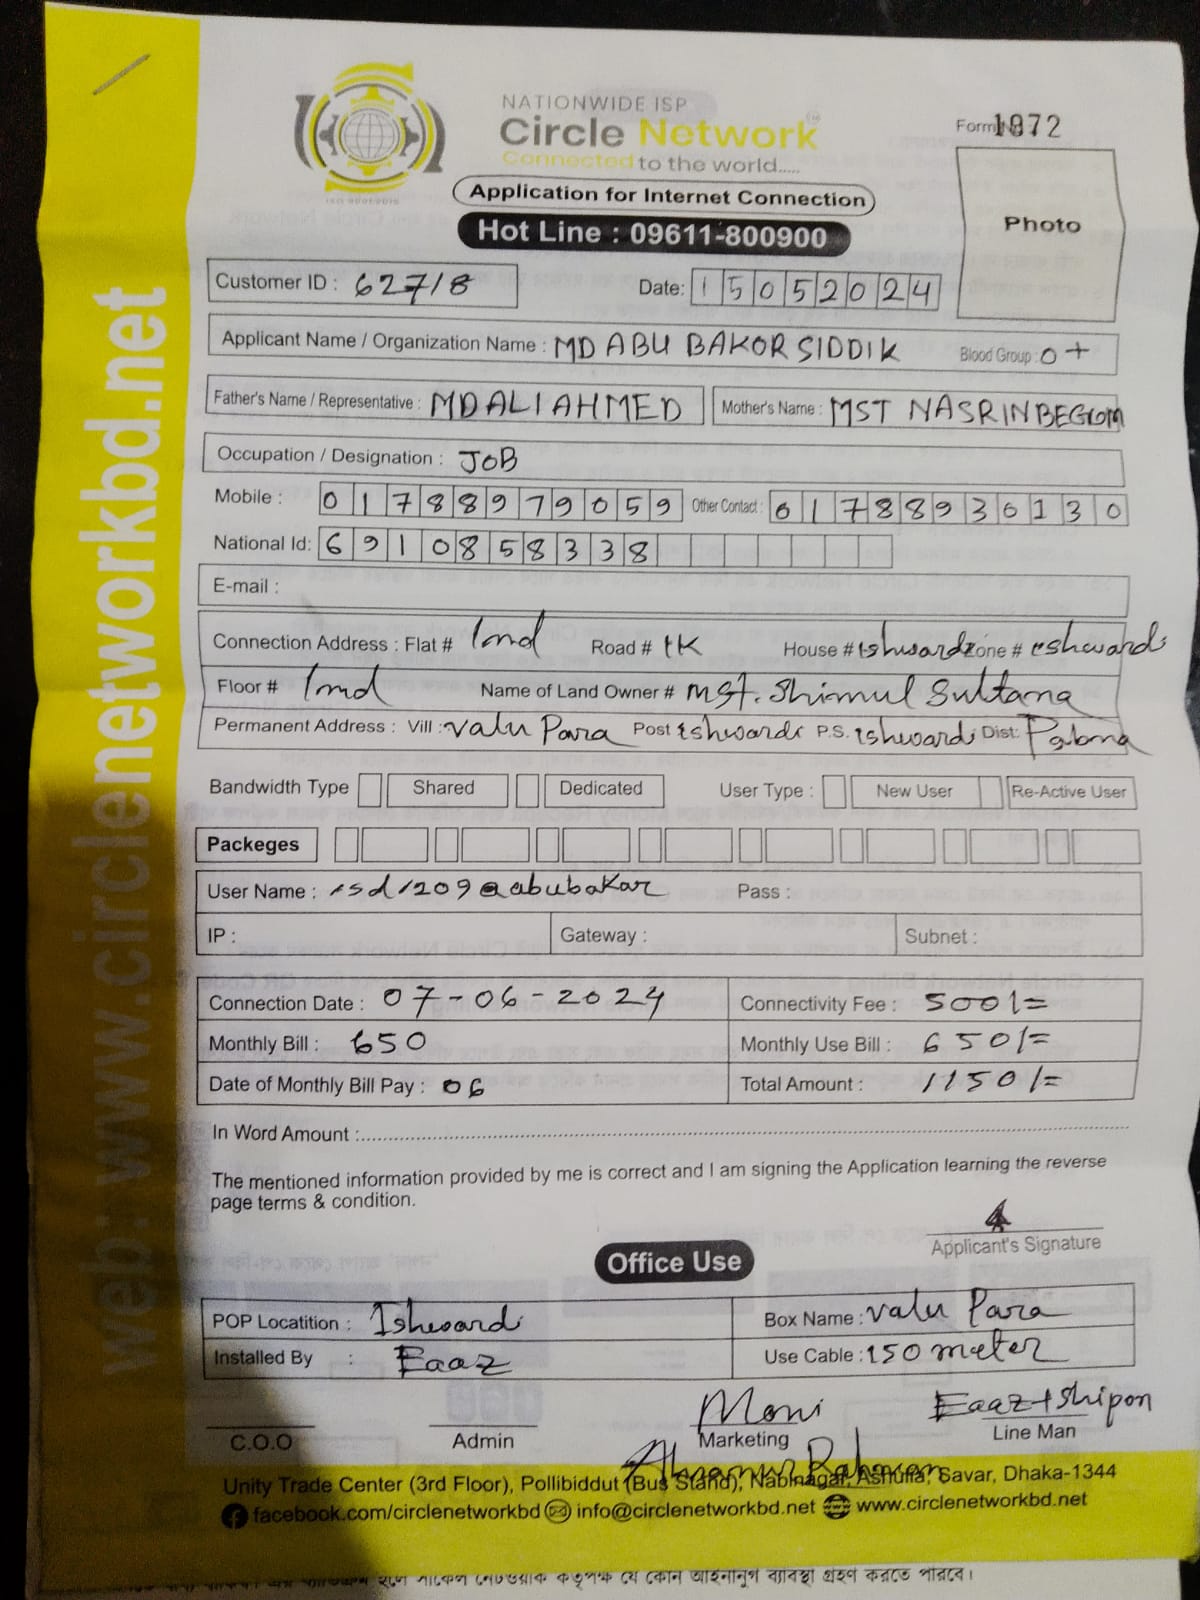 NATIONWIDE ISP
Circle Network
Connected to the world.....
Form 1972
ISO 9001:2015
Application for Internet Connection
Hot Line : 09611-800900
Photo
Customer ID : 62718 Date: 15052024
Applicant Name / Organization Name : MD ABU BAKOR SIDDIK Blood Group : O+
Father's Name / Representative : MD ALI AHMED Mother's Name : MST NASRIN BEGOM
Occupation / Designation : JOB
Mobile : 01788979059 Other Contact : 01788930130
National Id: 6910858338
E-mail :
Connection Address : Flat # Road # tk House # Ishwardi Zone # eshwardi
Floor # Name of Land Owner # Mst. Shimul Sultana
Permanent Address : Vill : Valu Para Post Ishwardi P.S. Ishwardi Dist: Pabna
Bandwidth Type Shared Dedicated User Type : New User Re-Active User
Packeges
User Name : isd1209@abubakar Pass :
IP : Gateway : Subnet :
Connection Date : 07-06-2024 Connectivity Fee : 500/=
Monthly Bill : 650 Monthly Use Bill : 650/=
Date of Monthly Bill Pay : 06 Total Amount : 1150/=
In Word Amount :
The mentioned information provided by me is correct and I am signing the Application learning the reverse
page terms & condition.
Applicant's Signature
Office Use
POP Locatition : Ishwardi Box Name : Valu Para
Installed By : Eaaz Use Cable : 150 meter
Moni Eaaz+Shipon
C.O.O Admin Marketing Line Man
Rahman
Unity Trade Center (3rd Floor), Pollibiddut (Bus Stand), Nabinagar, Ashulia, Savar, Dhaka-1344
facebook.com/circlenetworkbd info@circlenetworkbd.net www.circlenetworkbd.net
web: www.circlenetworkbd.net
যে কোন আইনানুগ ব্যবস্থা গ্রহণ করতে পারবে।